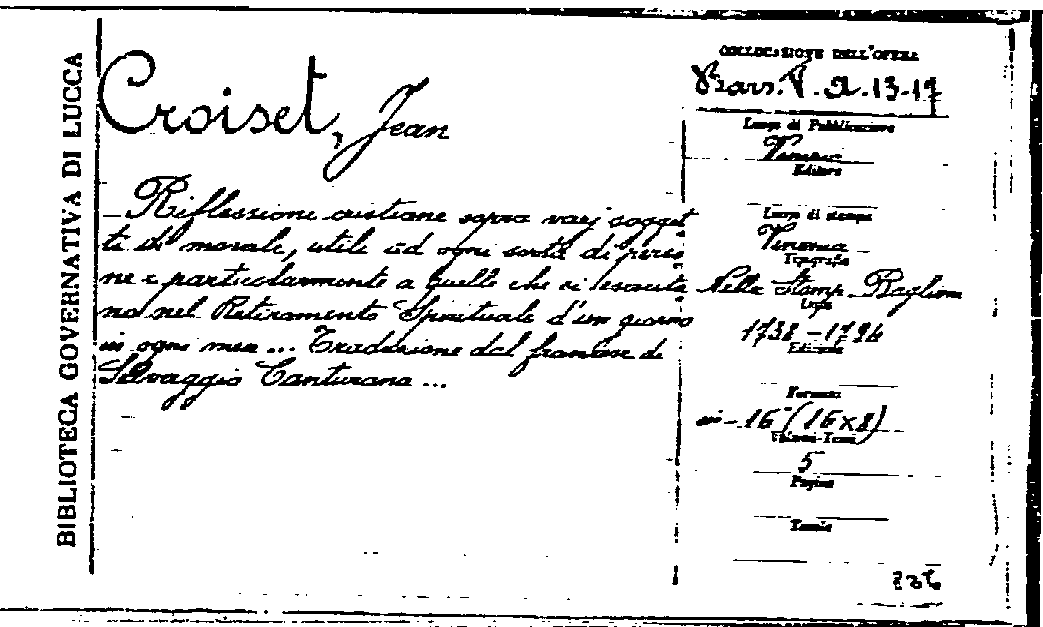 BIBLIOTECA GOVERNATIVA DI LUCCA
Croiset, Jean
Riflessione cristiane sopra varj sogget
ti di morale, utile ad ogni sorta di perso
ne e particolarmente a quelle che si
no nel Retiramento Spirituale d'un giorno
in ogni mese ... Traduzione dal francese di
Selvaggio Canturana ...
COLLOCAZIONE DELL'OPERA
A. 13-17
Luogo di Pubblicazione
Venezia
Editore
Luogo di stampa
Venezia
Tipografia
Nella Stamp. Baglioni
1738-1794
Edizione
Formato
in-16° (16x8)
Volumi-Tomi
5
Pagine
Tavole